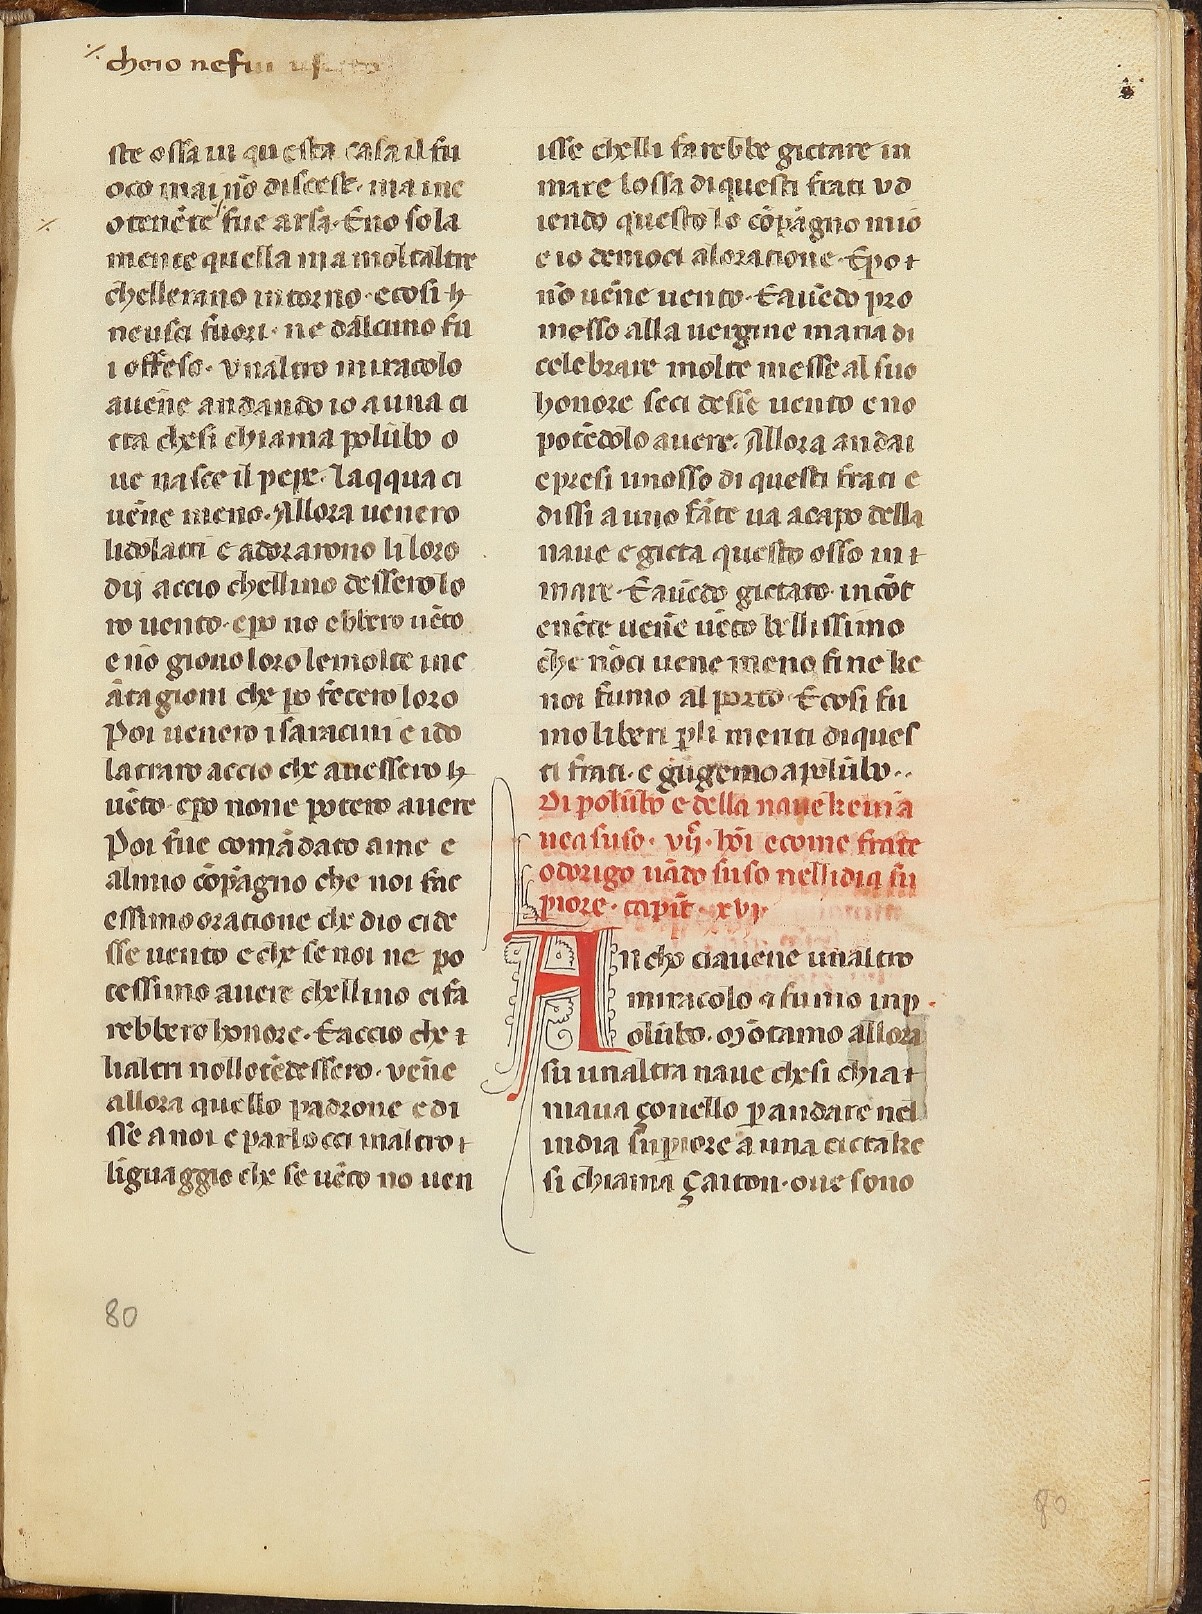 ⁒ cheio nefui usc
ste ossa in questa casa il fu
oco mai nō discese· ma inc
otenēte fue arsa· E no sola
mente quella ma moltaltre
chellerano intorno· e cosi ħ
neusci fuori· ne dalcuno fu
i offeso· vnaltro miracolo
auēne andando io a una ci
tta che si chiama polūbo o
ue nasce il pepe· laqqua ci
uēne meno· Allora uenero
lidolatri e adorarono li loro
dij accio chellino dessero lo
ro uento· epo no ebbero uēto
e nō giouo loro le molte inc
ātagioni che po fecero loro
Poi uenero i saracini e ido
latraro accio che auessero ħ
uēto· epo none potero auere
Poi fue comādato a me e
almio cōpagno che noi fac
essimo oratione che dio ci de
sse uento e che se noi ne po
tessimo auere chellino ci fa
rebbero honore· E accio che ɫ
lialtri nollotēdessero· vēne
allora quello padrone e di
sse a noi e parlocci inaltro ɫ
liguaggio che se uēto no uen
isse chelli farebbe gictare in
mare lossa di questi frati vd
iendo questo lo cōpagno mio
e io democi aloratione· E po ɫ
nō uēne uento· E auēdo pro
messo alla uergine maria di
celebrare molte messe al suo
honore seci desse uento e no
potēdolo auere· Allora andai
e presi unosso di questi frati e
dissi a uno fāte ua acapo della
naue e gicta questo osso in ɫ
mare· E auēdo gictato· incōt
enēte uēne uēto bellissimo
che nōci uene meno fine ke
noi fumo al porto· E cosi fu
mo liberi pli meriti di ques
ti frati· e gūgemo a polūbo··
Di polūbo e della naue kenia
uea suso· vij· hōi e come frate
odorigo uādo suso nellidia su
piore· capit̄· xvj
Ancho ci auene unaltro
miracolo ⁊ fumo inp
olūbo· Mōtamo allora
su unaltra naue che si chia ɫ
maua çonello p andare nel
india supiore a una cictà ke
si chiama çaiton· oue sono
80
80